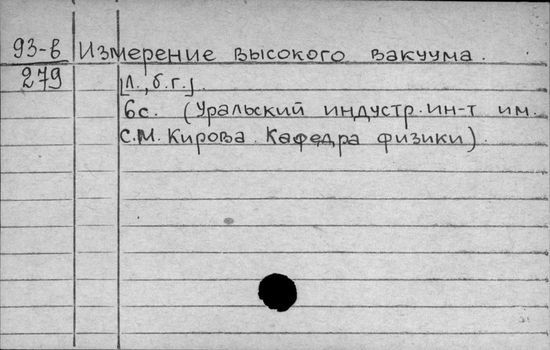 93-в Измерение высокого вакуума.
279 [Л., б.г.].
6с. (Уральский индустр. ин-т им.
С.М. Кирова. Кафедра физики).